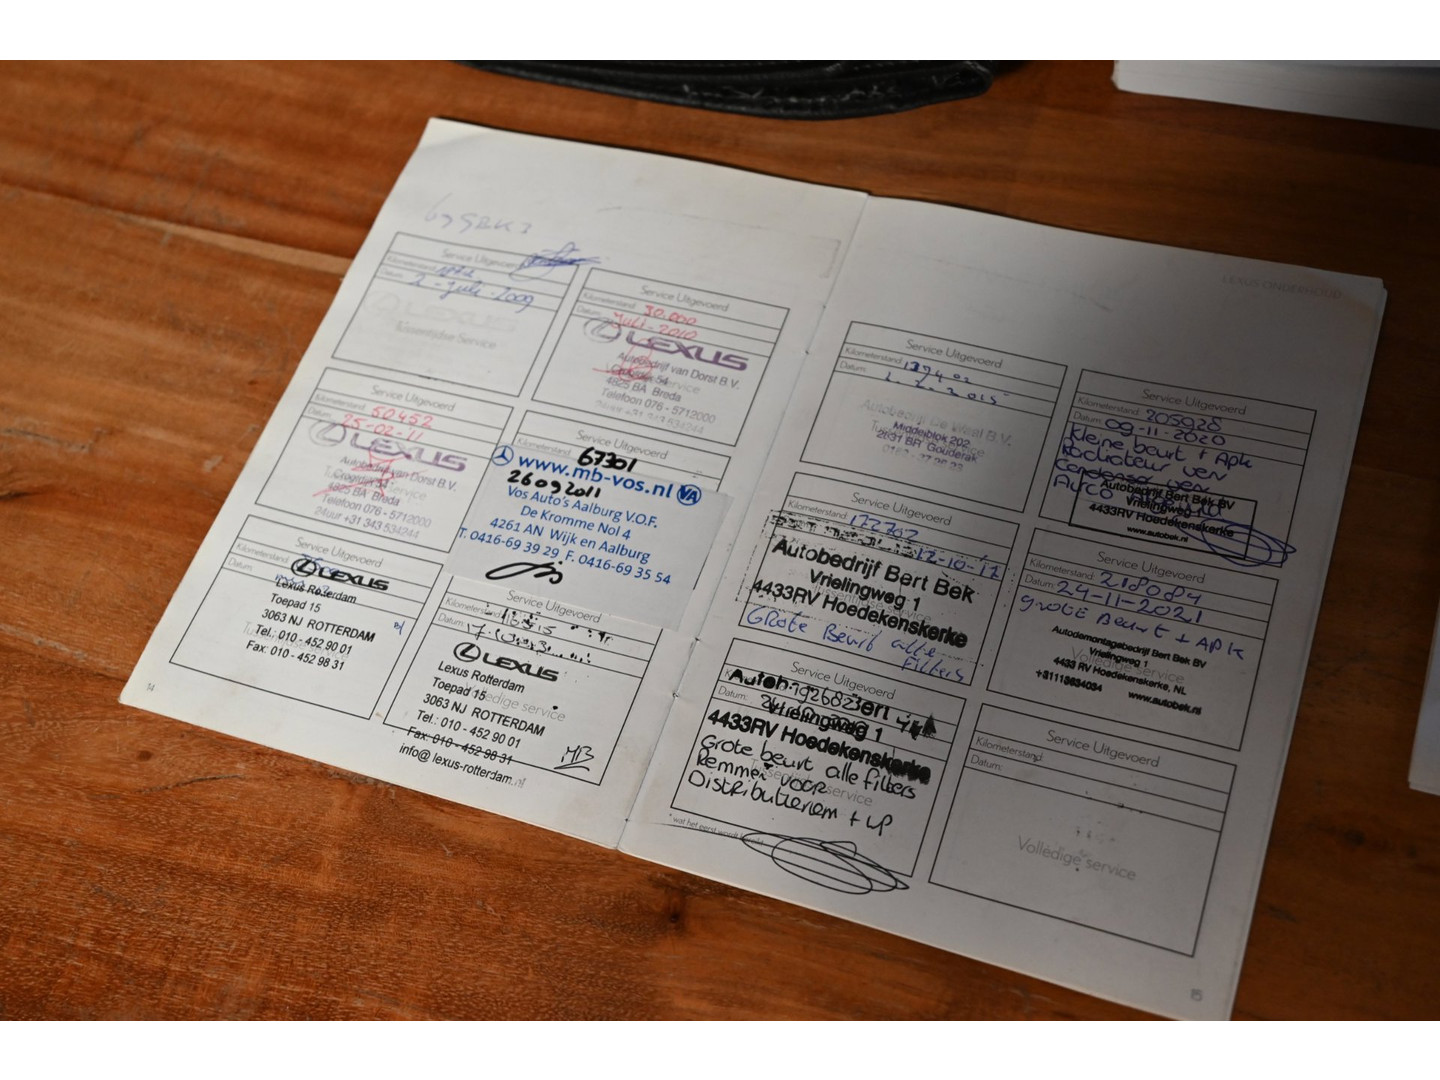 LEXUS ONDERHOUD
Service Uitgevoerd
Kilometerstand:
Datum: 2-Juli-2009
LEXUS
Tussentijdse Service
Service Uitgevoerd
Kilometerstand: 30.000
Datum: Juli-2010
LEXUS
Autobedrijf van Dorst B.V.
4825 BA Breda
Telefoon 076 - 5712000
24uur +31 343 534244
Service Uitgevoerd
Kilometerstand: 50452
Datum: 25-02-11
LEXUS
Autobedrijf van Dorst B.V.
4825 BA Breda
Telefoon 076 - 5712000
24uur +31 343 534244
Service Uitgevoerd
Kilometerstand: 67301
www.mb-vos.nl VA
26092011
Vos Auto's Aalburg V.O.F.
De Kromme Nol 4
4261 AN Wijk en Aalburg
T. 0416-69 39 29 F. 0416-69 35 54
Service Uitgevoerd
Kilometerstand:
LEXUS
Datum:
Lexus Rotterdam
Toepad 15
3063 NJ ROTTERDAM
Tel.: 010 - 452 90 01
Fax: 010 - 452 98 31
Service Uitgevoerd
Kilometerstand:
Datum:
LEXUS
Lexus Rotterdam
Toepad 15
Volledige service
3063 NJ ROTTERDAM
Tel.: 010 - 452 90 01
Fax: 010 - 452 98 31
info@lexus-rotterdam.nl
14
Service Uitgevoerd
Kilometerstand:
Datum:
Autobedrijf De Waal B.V.
Middelblok 202
2831 BR Gouderak
Service Uitgevoerd
Kilometerstand: 205928
Datum: 09-11-2020
Kleine beurt + Apk
Radiateur verv
Condensor verv
Autobedrijf Bert Bek BV
Vrielingweg 1
4433RV Hoedekenskerke
www.autobek.nl
Service Uitgevoerd
Kilometerstand: 172707
12-10-17
Autobedrijf Bert Bek
Vrielingweg 1
4433RV Hoedekenskerke
Grote Beurt alle
Filters
Service Uitgevoerd
Kilometerstand: 218084
Datum: 24-11-2021
grote Beurt + APK
Autodemontagebedrijf Bert Bek BV
Vrielingweg 1
Volledige service
4433 RV Hoedekenskerke, NL
+31113634034 www.autobek.nl
Service Uitgevoerd
Datum:
Vrielingweg 1
4433RV Hoedekenskerke
Grote beurt alle filters
Remmen voor
Distributieriem + WP
* wat het eerst wordt bereikt
Service Uitgevoerd
Kilometerstand:
Datum:
Volledige service
15